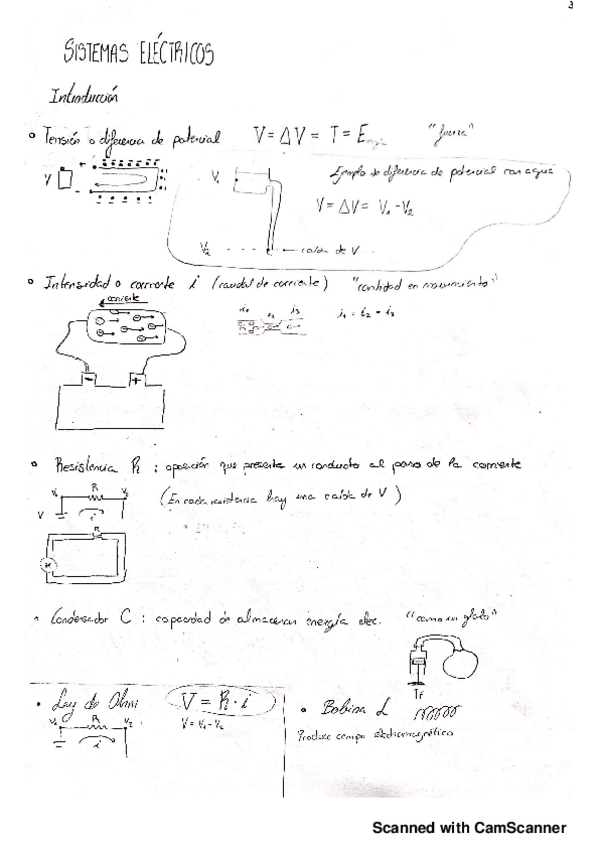 3
SISTEMAS ELÉCTRICOS
Introducción
Tensión o diferencia de potencial V = ΔV = T = E "fuerza"
V
V₁
Ejemplo de diferencia de potencial con agua
V = ΔV = V₁ - V₂
V₂ caída de V
Intensidad o corriente i (caudal de corriente) "cantidad en movimiento"
corriente
i₁ i₂ i₃ i₁ = i₂ = i₃
- +
Resistencia R : oposición que presenta un conducto al paso de la corriente
V₁ R V₂
(En cada resistencia hay una caída de V)
V i
R
Condensador C : capacidad de almacenar energía elec. "como un globo"
Ley de Ohm V = R · i
V₁ R V₂ V = V₁ - V₂
i
Bobina L
Produce campo electromagnético
Scanned with CamScanner